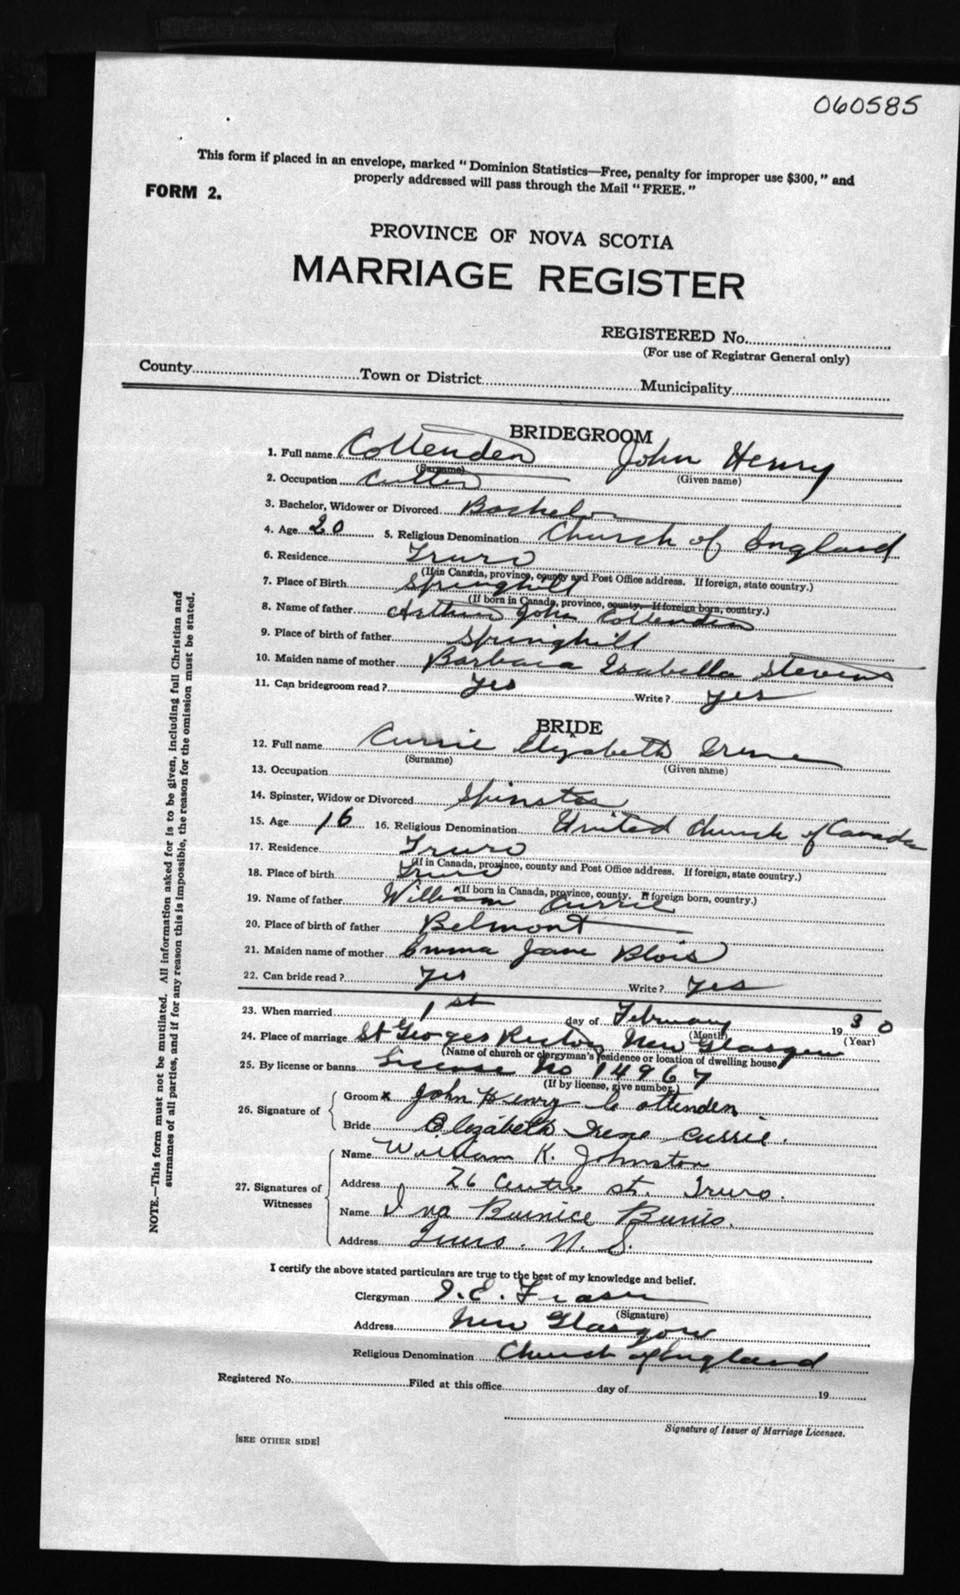 060585
This form if placed in an envelope, marked "Dominion Statistics—Free, penalty for improper use $300," and
properly addressed will pass through the Mail "FREE."
FORM 2.
PROVINCE OF NOVA SCOTIA
MARRIAGE REGISTER
REGISTERED No.
(For use of Registrar General only)
County Town or District Municipality
BRIDEGROOM
1. Full name Cottenden John Henry
(Surname) (Given name)
2. Occupation Cutter
3. Bachelor, Widower or Divorced Bachelor
4. Age 20 5. Religious Denomination Church of England
6. Residence Truro
(If in Canada, province, county and Post Office address. If foreign, state country.)
7. Place of Birth Springhill
(If born in Canada, province, county. If foreign born, country.)
8. Name of father Arthur John Cottenden
9. Place of birth of father Springhill
10. Maiden name of mother Barbara Isabella Stevens
11. Can bridegroom read? Yes Write? yes
BRIDE
12. Full name Currie Elizabeth Irene
(Surname) (Given name)
13. Occupation
14. Spinster, Widow or Divorced Spinster
15. Age 16 16. Religious Denomination United Church of Canada
17. Residence Truro
(If in Canada, province, county and Post Office address. If foreign, state country.)
18. Place of birth Truro
(If born in Canada, province, county. If foreign born, country.)
19. Name of father William Currie
20. Place of birth of father Belmont
21. Maiden name of mother Emma Jane Blois
22. Can bride read? Yes Write? Yes
23. When married 1st day of February 1930
(Month) (Year)
24. Place of marriage St Georges Rectory New Glasgow
(Name of church or clergyman's residence or location of dwelling house)
25. By license or banns License No 14967
(If by license, give number)
26. Signature of Groom x John Henry Cottenden
Bride Elizabeth Irene Currie.
27. Signatures of Witnesses Name William K. Johnston
Address 26 Centre st. Truro.
Name Ina Burnice
Address Truro. N. S.
I certify the above stated particulars are true to the best of my knowledge and belief.
Clergyman E. Fraser
(Signature)
Address New Glasgow
Religious Denomination Church of England
Registered No. Filed at this office day of 19
Signature of Issuer of Marriage Licenses.
[SEE OTHER SIDE]
NOTE.—This form must not be mutilated. All information asked for is to be given, including full Christian and
surnames of all parties, and if for any reason this is impossible, the reason for the omission must be stated.